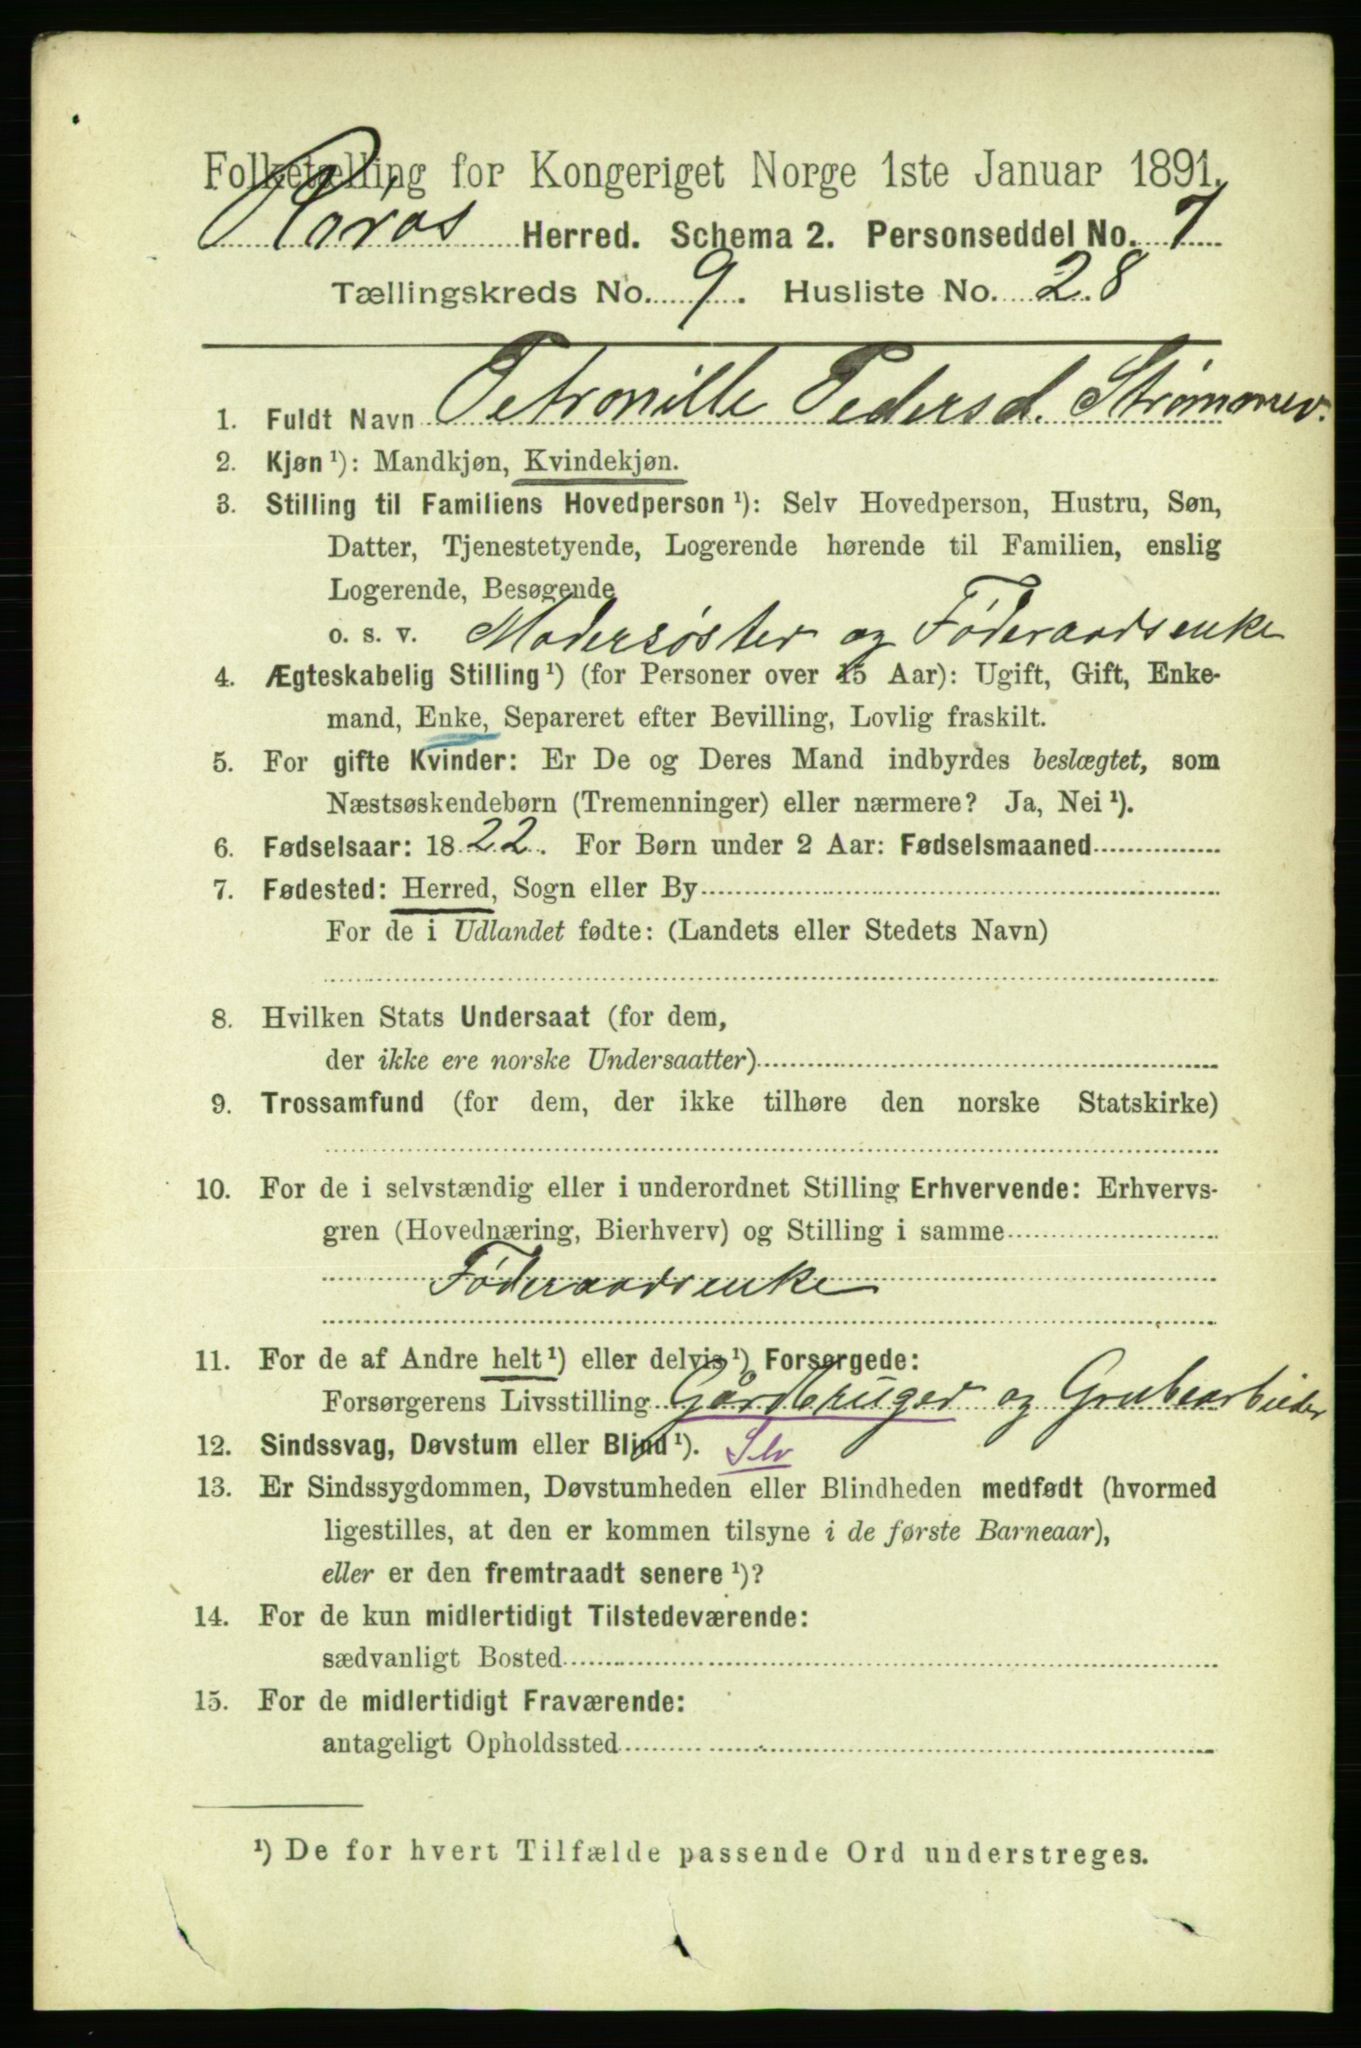 Folketælling for Kongeriget Norge 1ste Januar 1891.
Røros Herred. Schema 2. Personseddel No. 7
Tællingskreds No. 9. Husliste No. 28
1. Fuldt Navn Petronille Pedersd. Strømmev.
2. Kjøn ¹): Mandkjøn, Kvindekjøn.
3. Stilling til Familiens Hovedperson ¹): Selv Hovedperson, Hustru, Søn,
Datter, Tjenestetyende, Logerende hørende til Familien, enslig
Logerende, Besøgende
o. s. v. Modersøster og Føderaadsenke
4. Ægteskabelig Stilling ¹) (for Personer over 15 Aar): Ugift, Gift, Enke-
mand, Enke, Separeret efter Bevilling, Lovlig fraskilt.
5. For gifte Kvinder: Er De og Deres Mand indbyrdes beslægtet, som
Næstsøskendebørn (Tremenninger) eller nærmere? Ja, Nei ¹).
6. Fødselsaar: 1822. For Børn under 2 Aar: Fødselsmaaned
7. Fødested: Herred, Sogn eller By
For de i Udlandet fødte: (Landets eller Stedets Navn)
8. Hvilken Stats Undersaat (for dem,
der ikke ere norske Undersaatter)
9. Trossamfund (for dem, der ikke tilhøre den norske Statskirke)
10. For de i selvstændig eller i underordnet Stilling Erhvervende: Erhvervs-
gren (Hovednæring, Bierhverv) og Stilling i samme
Føderaadsenke
11. For de af Andre helt ¹) eller delvis ¹) Forsørgede:
Forsørgerens Livsstilling Gårdbruger og Grubearbeider
12. Sindssvag, Døvstum eller Blind ¹). Slv
13. Er Sindssygdommen, Døvstumheden eller Blindheden medfødt (hvormed
ligestilles, at den er kommen tilsyne i de første Barneaar),
eller er den fremtraadt senere ¹)?
14. For de kun midlertidigt Tilstedeværende:
sædvanligt Bosted
15. For de midlertidigt Fraværende:
antageligt Opholdssted
¹) De for hvert Tilfælde passende Ord understreges.